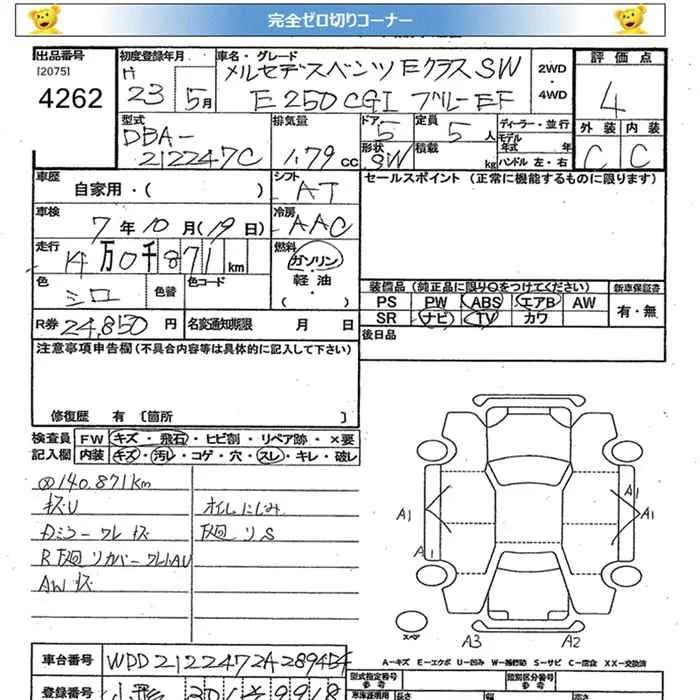 完全ゼロ切りコーナー
出品番号 初度登録年月 車名・グレード 評価点
[2075] H メルセデスベンツ Eクラス SW 2WD
4262 23 5月 E250 CGI ブルーEF ・ 4WD 4
型式 排気量 ドア 定員 ディーラー・並行 外装 内装
DBA- 5 5人 モデル年式 年 C C
212247C 1.79cc 形状 SW 積載 kg ハンドル 左・右
車歴 自家用・( ) シフト AT セールスポイント (正常に機能するものに限ります)
車検 7年10月(19日) 冷房 AAC
走行 14万0千871km 燃料 ガソリン
色 シロ 色替 色コード 軽油・( )
装備品 (純正品に限り○をつけてください) 新車保証書
PS PW ABS エアB AW 有・無
SR ナビ TV カワ
R券 24,850円 名変通知期限 月 日 後日品
注意事項申告欄 (不具合内容等は具体的に記入して下さい)
修復歴 有 [箇所 ]
検査員 FW キズ・飛石・ヒビ割・リペア跡・×要
記入欄 内装 キズ・汚レ・コゲ・穴・スレ・キレ・破レ
140.871km
キズU オイルにじみ
ミラーワレ キズ 下廻リS
R下廻リカバーワレ
AWキズ
A1
A1
A1
A1
スペア
A3 A2
A－キズ E－エクボ U－凹み W－補修跡 S－サビ C－腐食 XX－交換済
車台番号 WDD2122472A289454
型式指定番号 類別区分番号
登録番号 長さ 幅 高さ